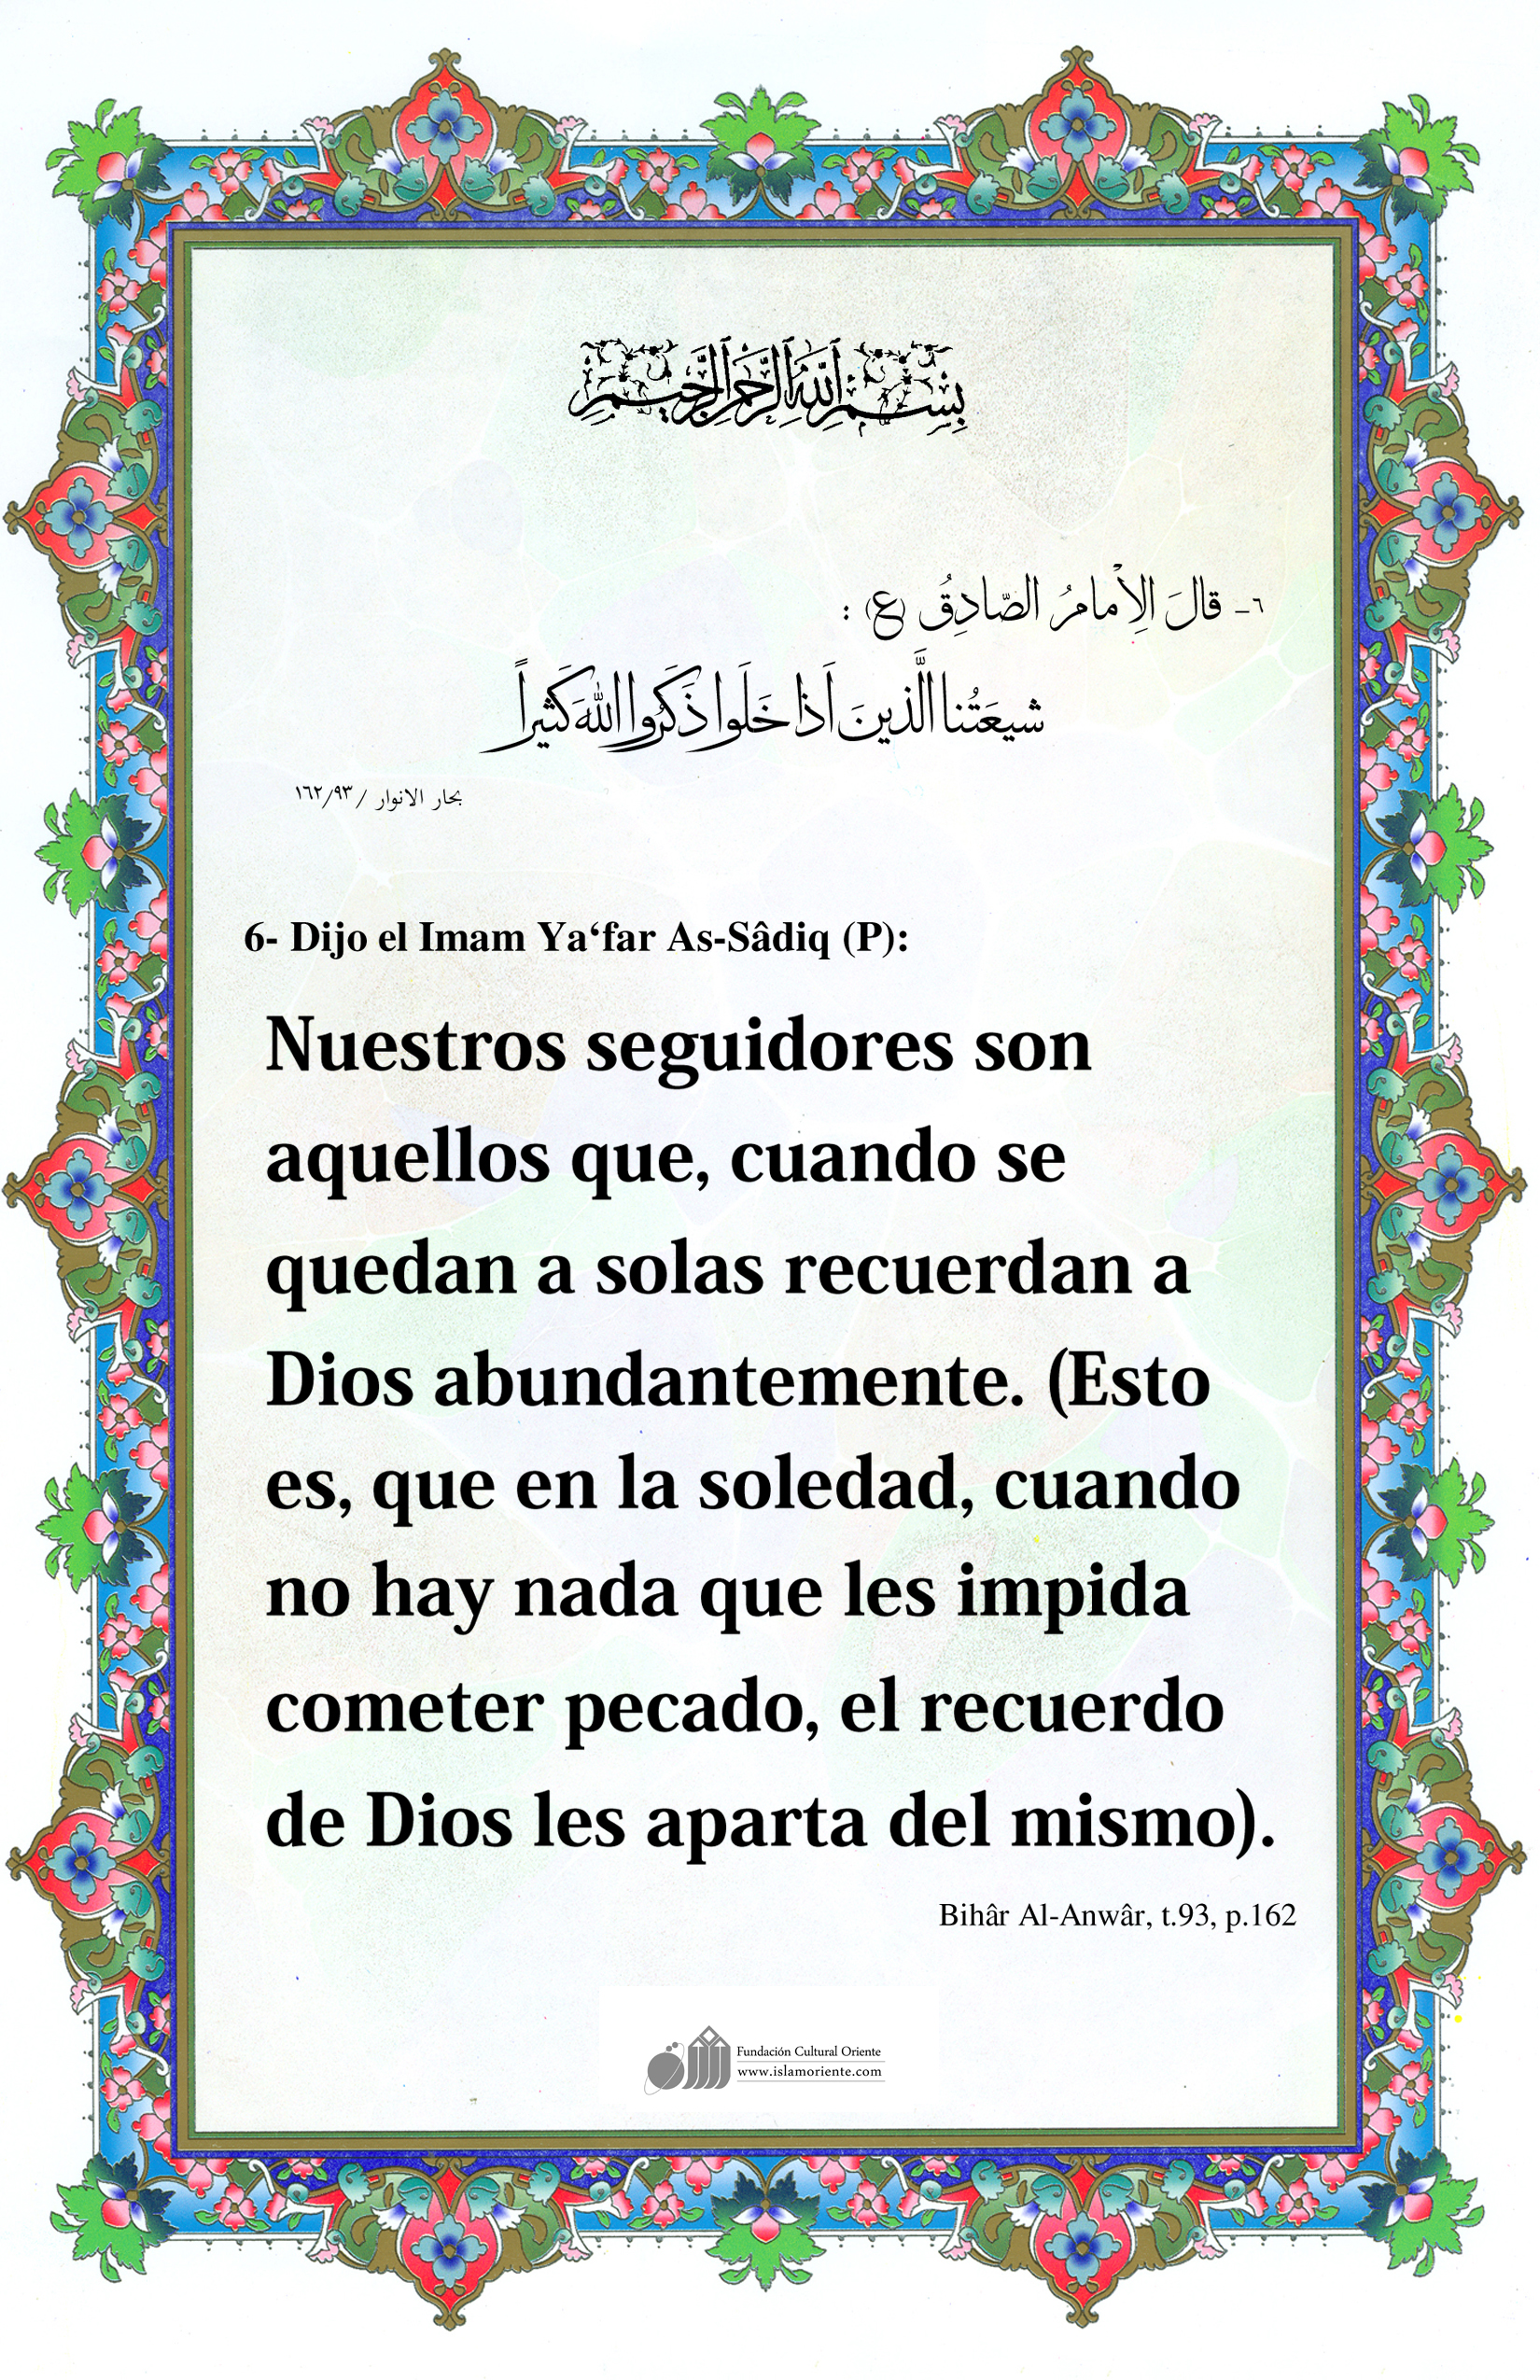 بِسْمِ اللَّهِ الرَّحْمَنِ الرَّحِيمِ
٦- قالَ الِاْمامُ الصّادِقُ (ع) :
شيعَتُنا الَّذينَ اَذا خَلَوا ذَكَرُوا اللهَ كَثيراً
بحار الانوار /١٦٢/٩٣
6- Dijo el Imam Ya‘far As-Sâdiq (P):
Nuestros seguidores son
aquellos que, cuando se
quedan a solas recuerdan a
Dios abundantemente. (Esto
es, que en la soledad, cuando
no hay nada que les impida
cometer pecado, el recuerdo
de Dios les aparta del mismo).
Bihâr Al-Anwâr, t.93, p.162
Fundación Cultural Oriente
www.islamoriente.com